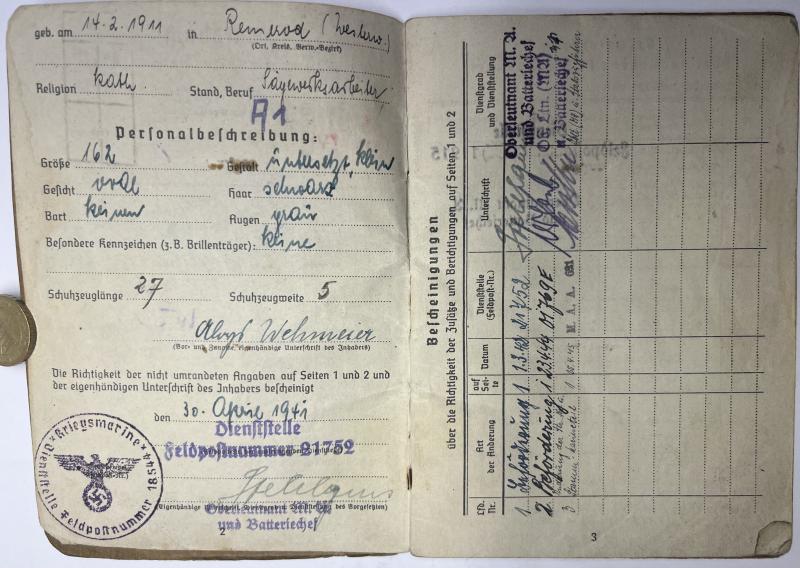 geb. am 14.2.1911 in Remrod (Westerw.)
(Ort, Kreis, Verw.-Bezirk)
Religion kath. Stand, Beruf Sägewerksarbeiter
A1
Personalbeschreibung:
Größe 162 Gestalt untersetzt, klein
Gesicht oval Haar schwarz
Bart keinen Augen grau
Besondere Kennzeichen (z.B. Brillenträger): keine
Schuhzeuglänge 27 Schuhzeugweite 5
Aloys Wehmeier
(Vor- und Zuname, eigenhändige Unterschrift des Inhabers)
Die Richtigkeit der nicht umrandeten Angaben auf Seiten 1 und 2 und
der eigenhändigen Unterschrift des Inhabers bescheinigt
den 30. April 1941
Dienststelle
Feldpostnummer 21752
Kriegsmarine
Dienststelle Feldpostnummer 18544
Oberleutnant M.A.
und Batteriechef
2
Bescheinigungen
über die Richtigkeit der Zusätze und Berichtigungen auf Seiten 1 und 2
Lfd. Nr. Art der Änderung auf Seite Datum Dienststelle (Feldpost-Nr.) Unterschrift Dienstgrad und Dienststellung
1. Beförderung 1 21752 Oberleutnant M. A. und Batteriechef
2. Beförderung 1 23.4.44 01769E O. Ltn. (MA) u. Batteriechef
3 1 M. A. A.
3